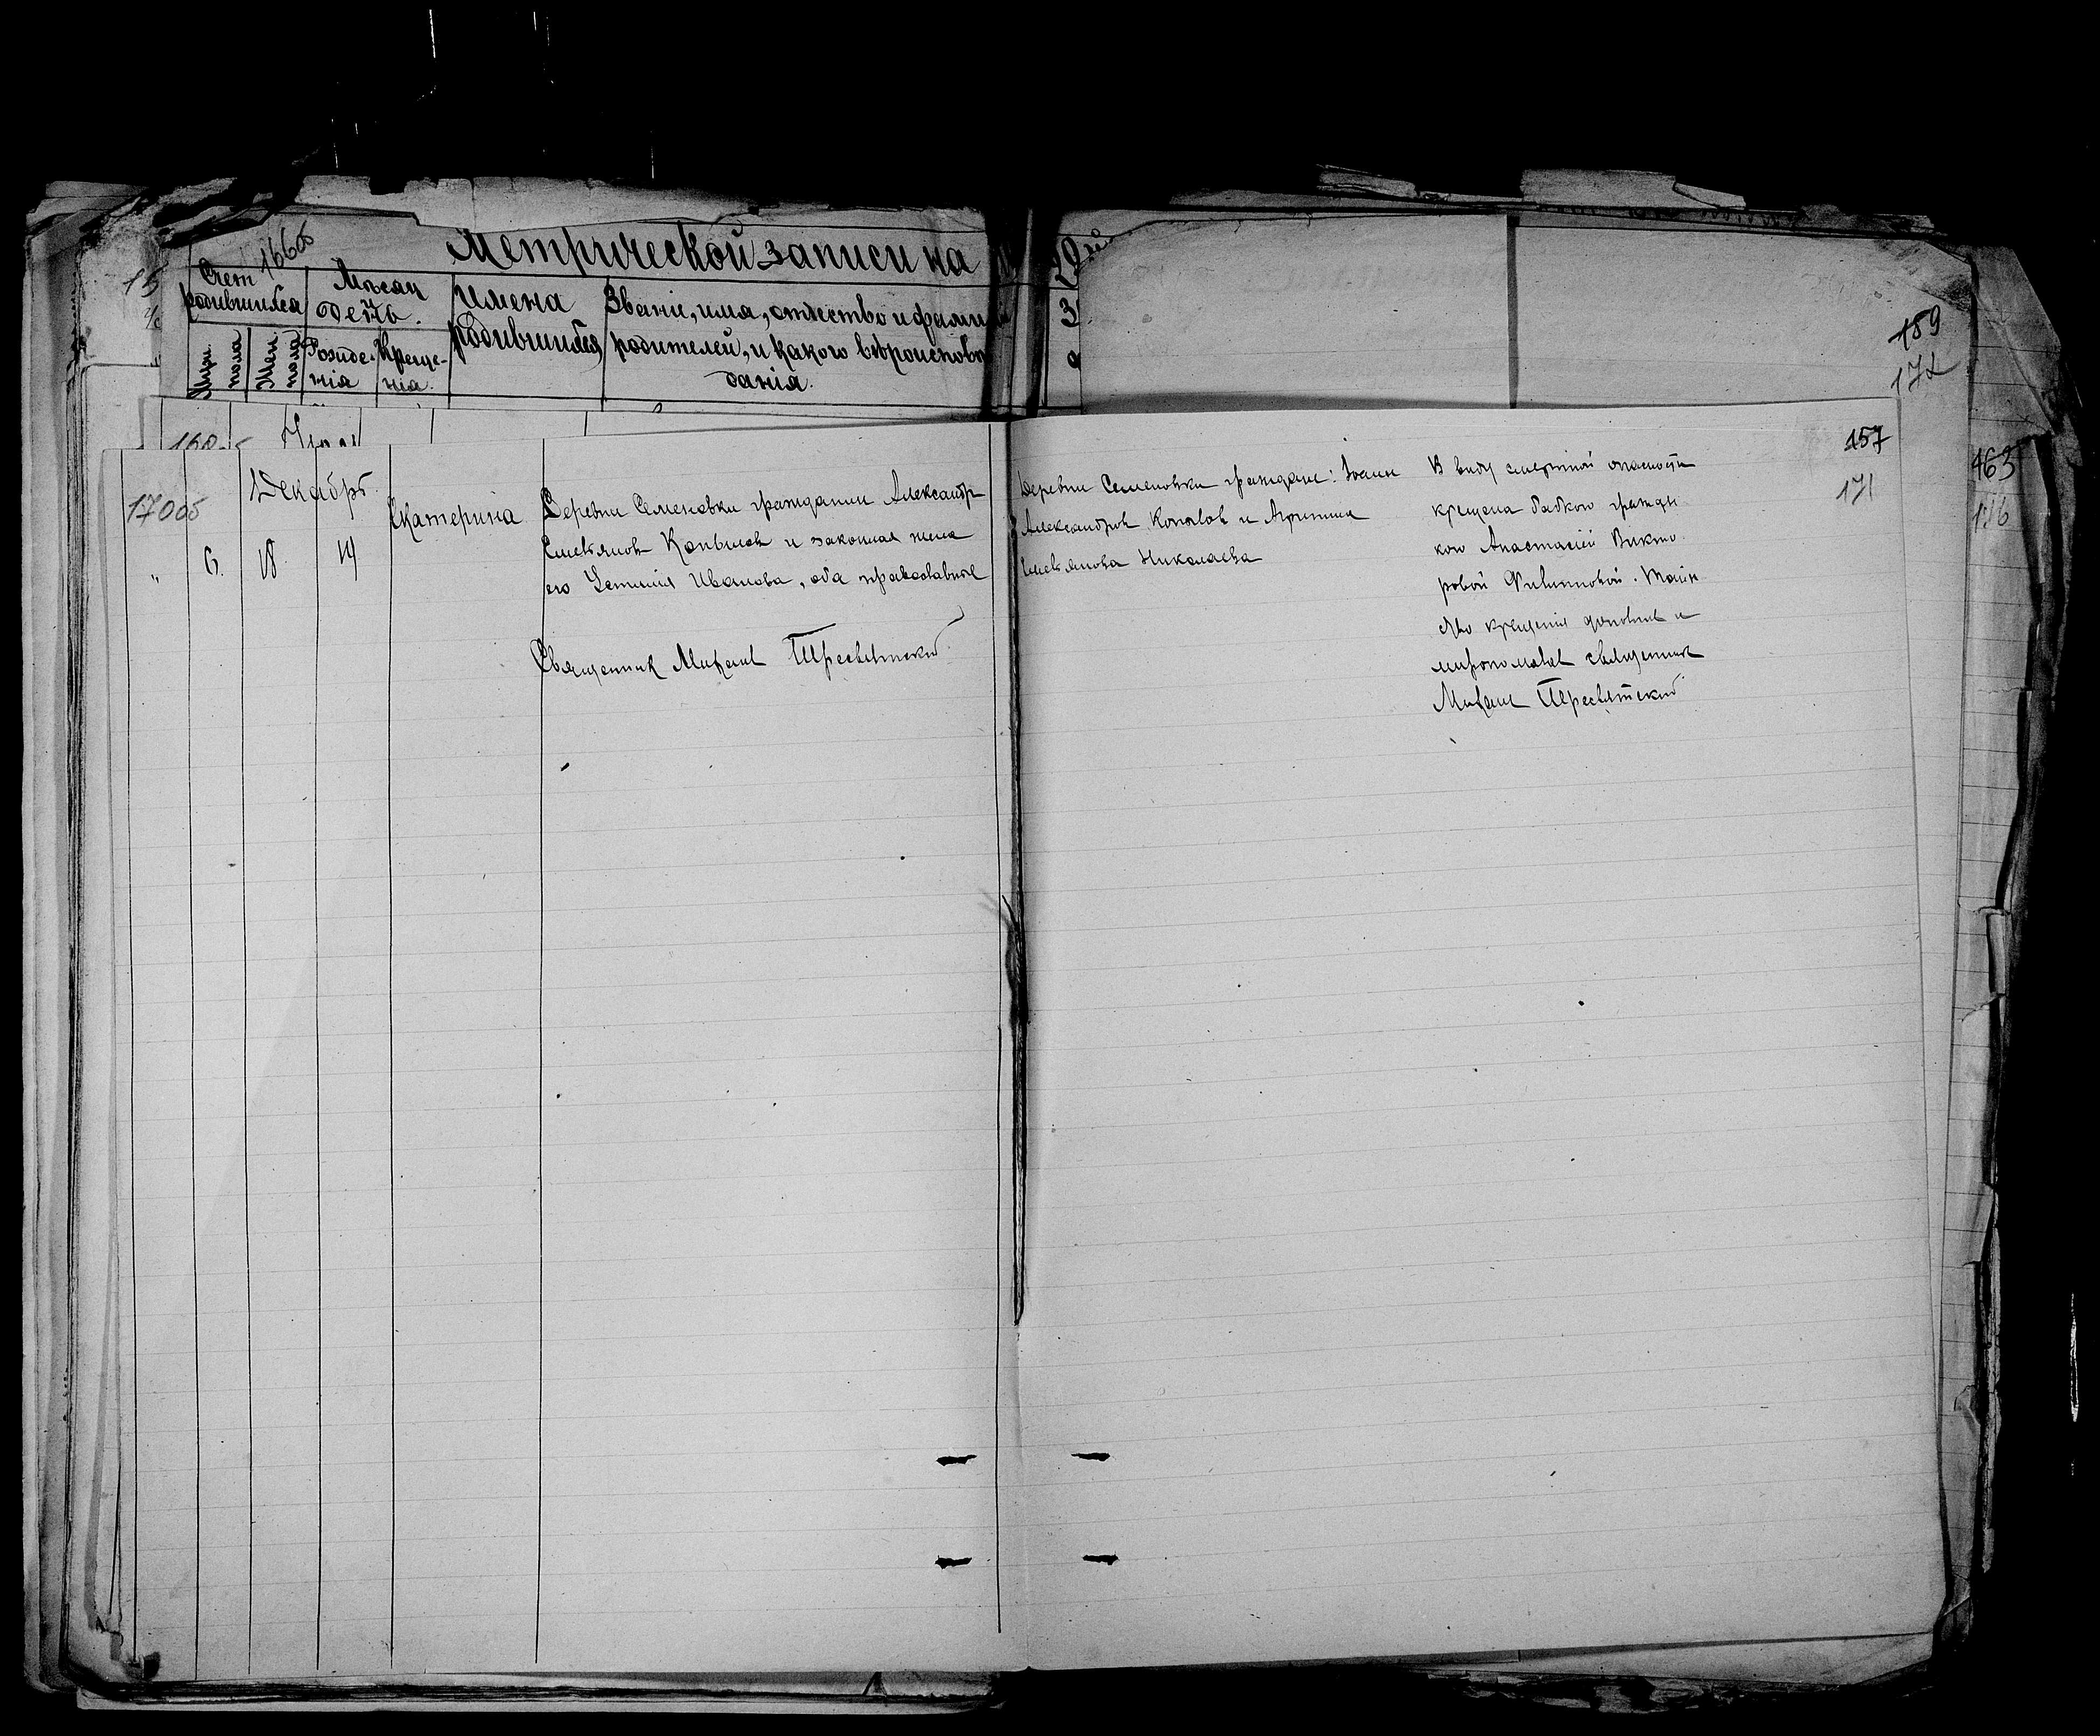 166об
Метрической записи на
29й
Счет родившихся
Мѣсяц и день.
Имена родившихся
Званіе, имя, отчество и фами
родителей, и какого вѣроисповѣ
данія.
Муж. пола
Жен. пола
Рожде-
нія
Креще-
нія.
159
172
163
176
157
171
170об
Декабрь
" 6. 18. 19
Екатерина
Деревни Семеновки гражданин Александр
Емельянов и законная жена
его Устинія Иванова, оба православные
Священник Михаил Пресвятский
Деревни Семеновки граждане: Іоанн
Александров и Агрипина
Емельянова Николаева
В виду смертной опасности
крещена бабкою граждан
кою Анастасіей Викто
ровой Филипповой. Таин
ство крещенія дополнил и
миропомазал священник
Михаил Пресвятский